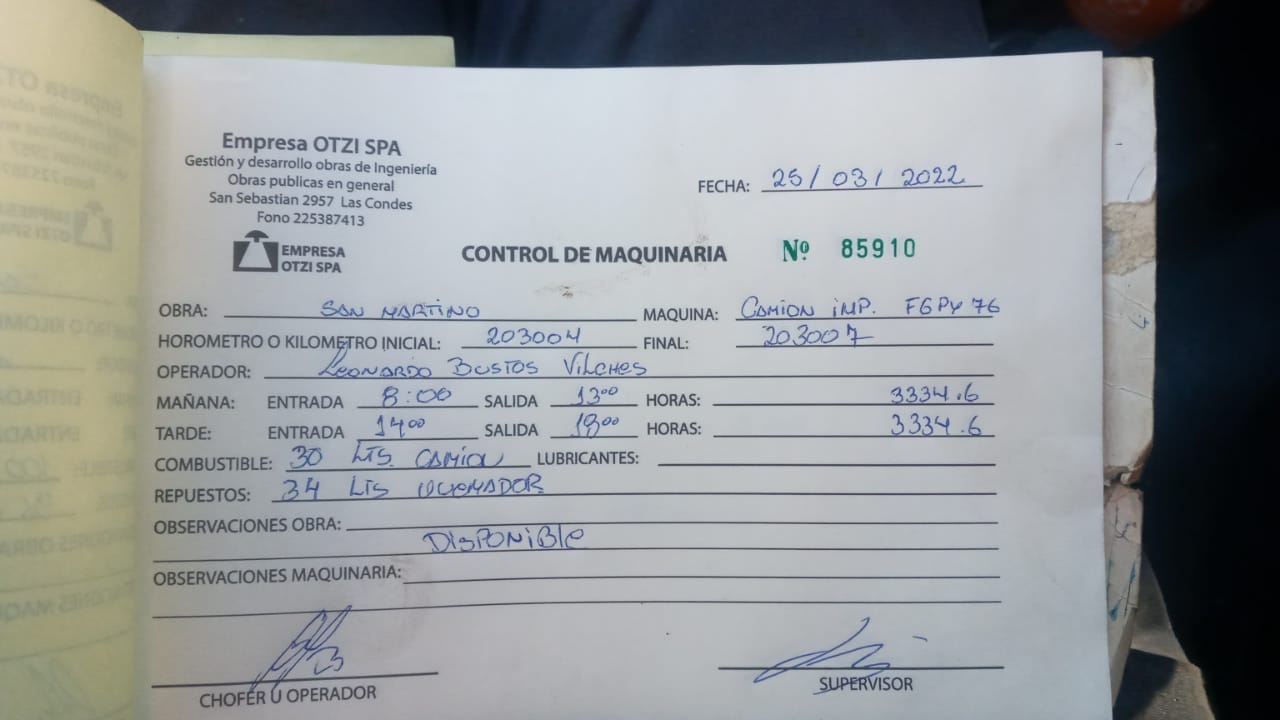 Empresa OTZI SPA
Gestión y desarrollo obras de Ingeniería
Obras publicas en general
San Sebastian 2957 Las Condes
Fono 225387413
EMPRESA
OTZI SPA
FECHA: 25/03/2022
CONTROL DE MAQUINARIA Nº 85910
OBRA: SAN MARTINO MAQUINA: CAMION IMP. FGPY 76
HOROMETRO O KILOMETRO INICIAL: 203004 FINAL: 203007
OPERADOR: LEONARDO BUSTOS VILCHES
MAÑANA: ENTRADA 8:00 SALIDA 13:00 HORAS: 3334.6
TARDE: ENTRADA 14:00 SALIDA HORAS: 3334.6
COMBUSTIBLE: 30 LTS. CAMION LUBRICANTES:
REPUESTOS: 34 LTS QUEMADOR
OBSERVACIONES OBRA:
DISPONIBLE
OBSERVACIONES MAQUINARIA:
CHOFER U OPERADOR
SUPERVISOR